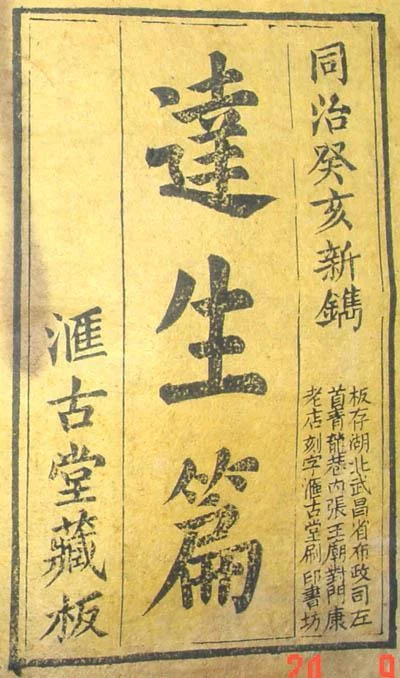 同治癸亥新鐫
板存湖北武昌省布政司左
首青龍巷内張王廟對門康
老店刻字滙古堂刷印書坊
達生篇
滙古堂藏板
20 9